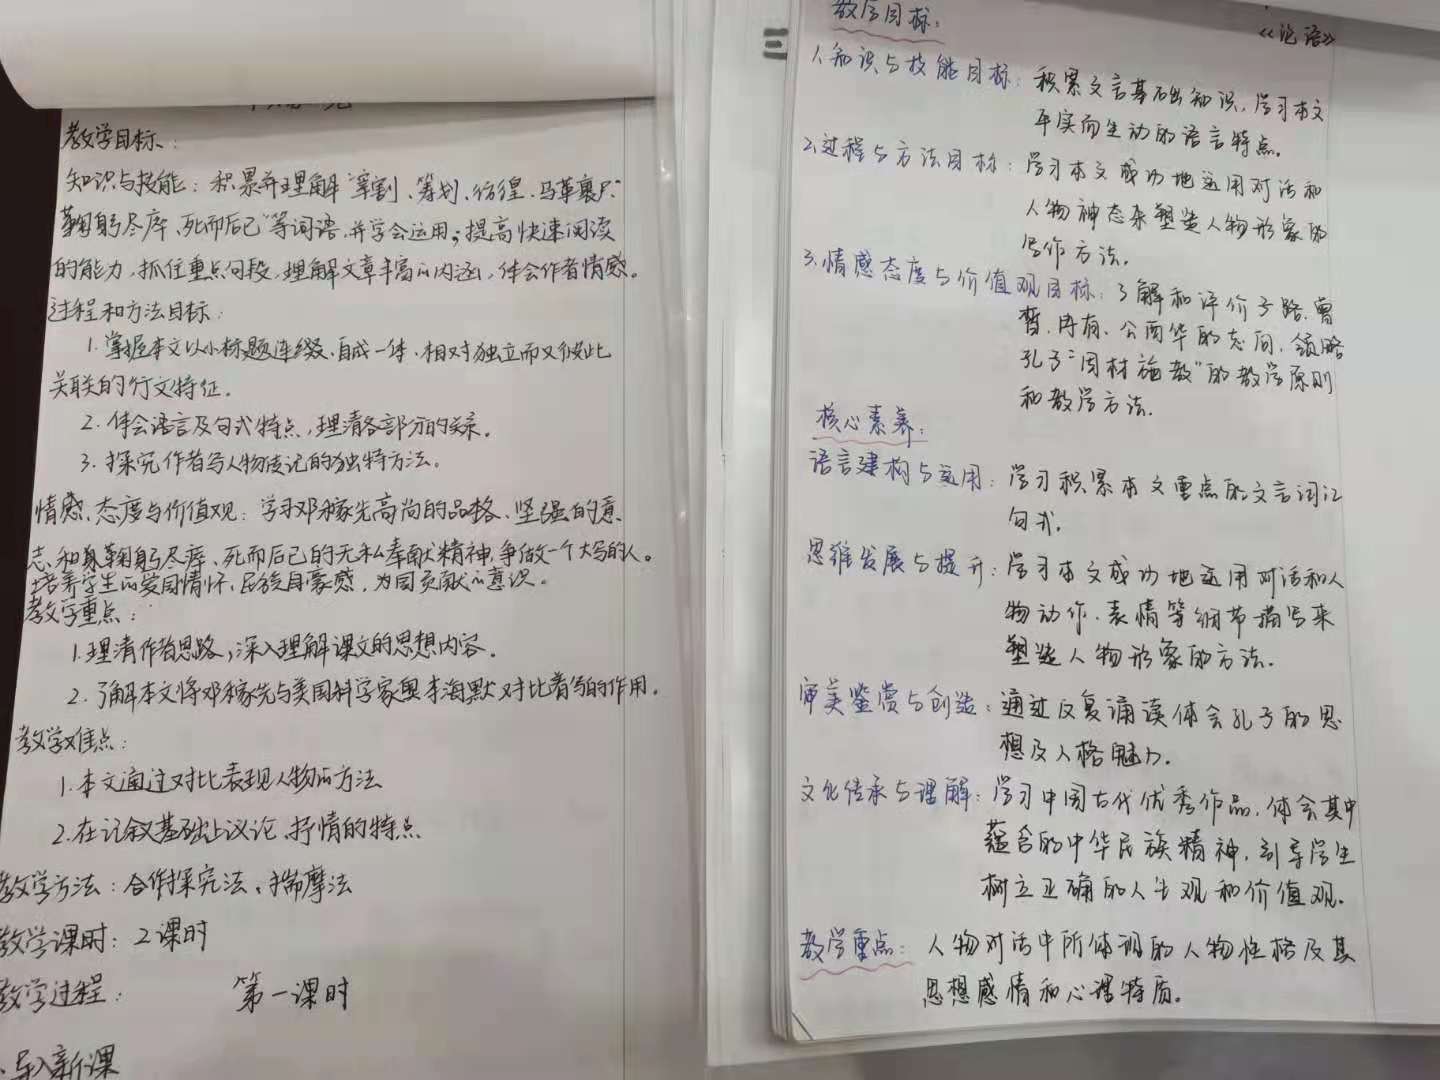 教学目标:
知识与技能:积累并理解“宰割、筹划、彷徨、马革裹尸、
鞠躬尽瘁、死而后已”等词语,并学会运用;提高快速阅读
的能力,抓住重点句段,理解文章丰富的内涵,体会作者情感。
过程和方法目标:
1.掌握本文以小标题连缀、自成一体、相对独立而又彼此
关联的行文特征。
2.体会语言及句式特点,理清各部分的关系。
3.探究作者写人物传记的独特方法。
情感、态度与价值观:学习邓稼先高尚的品格、坚强的意
志和鞠躬尽瘁、死而后已的无私奉献精神,争做一个大写的人。
培养学生的爱国情怀、民族自豪感,为国贡献的意识。
教学重点:
1.理清作者思路,深入理解课文的思想内容。
2.了解本文将邓稼先与美国科学家奥本海默对比着写的作用。
教学难点:
1.本文通过对比表现人物的方法
2.在记叙基础上议论、抒情的特点
教学方法:合作探究法、揣摩法
教学课时:2课时
教学过程: 第一课时
导入新课
三
《论语》
教学目标:
1.知识与技能目标:积累文言基础知识,学习本文
平实而生动的语言特点。
2.过程与方法目标:学习本文成功地运用对话和
人物神态来塑造人物形象的
写作方法。
3.情感态度与价值观目标:了解和评价子路、曾
皙、冉有、公西华的志向,领略
孔子“因材施教”的教学原则
和教学方法.
核心素养:
语言建构与运用:学习积累本文重点的文言词汇
句式.
思维发展与提升:学习本文成功地运用对话和人
物动作、表情等细节描写来
塑造人物形象的方法.
审美鉴赏与创造:通过反复诵读体会孔子的思
想及人格魅力.
文化传承与理解:学习中国古代优秀作品,体会其中
蕴含的中华民族精神,引导学生
树立正确的人生观和价值观.
教学重点:人物对话中所体现的人物性格及其
思想感情和心理特质。